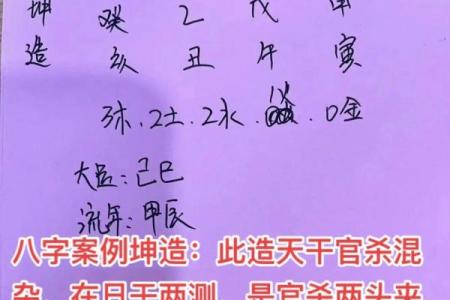 坤 癸 乙 戊 甲
造 亥 丑 午 寅
3木.2土.2水. .0金
大运:己巳
流年:甲辰
八字案例坤造：此造天干官杀混
杂，在日干两测，是官杀两头来